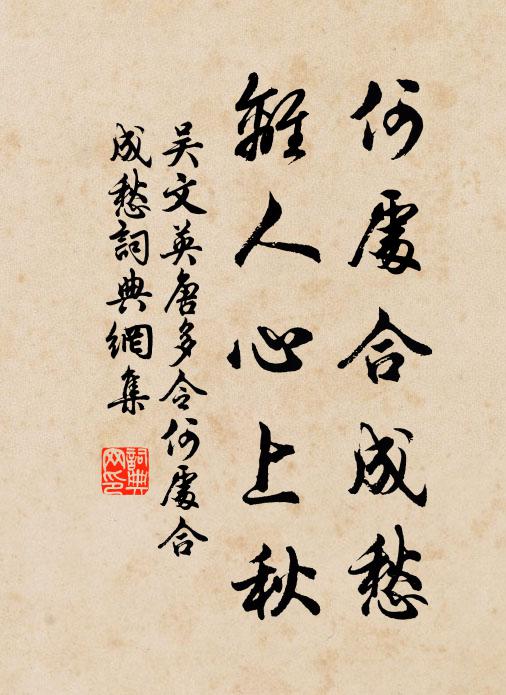 何處合成愁
離人心上秋
吳文英唐多令何處合
成愁詞典網集
詞典
网印